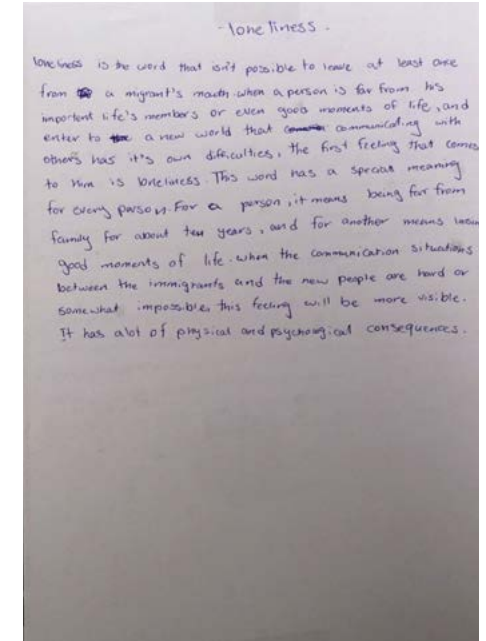 -loneliness.
loneliness is the word that isn't possible to leave at least once
from a migrant's mouth. when a person is far from his
important life's members or even good moments of life, and
enter to a new world that communicating with
others has it's own difficulties, the first feeling that comes
to him is loneliness. This word has a special meaning
for every person. For a person, it means being far from
family for about ten years, and for another means losing
good moments of life. when the communication situations
between the immigrants and the new people are hard or
somewhat impossible, this feeling will be more visible.
It has alot of physical and psychological consequences.